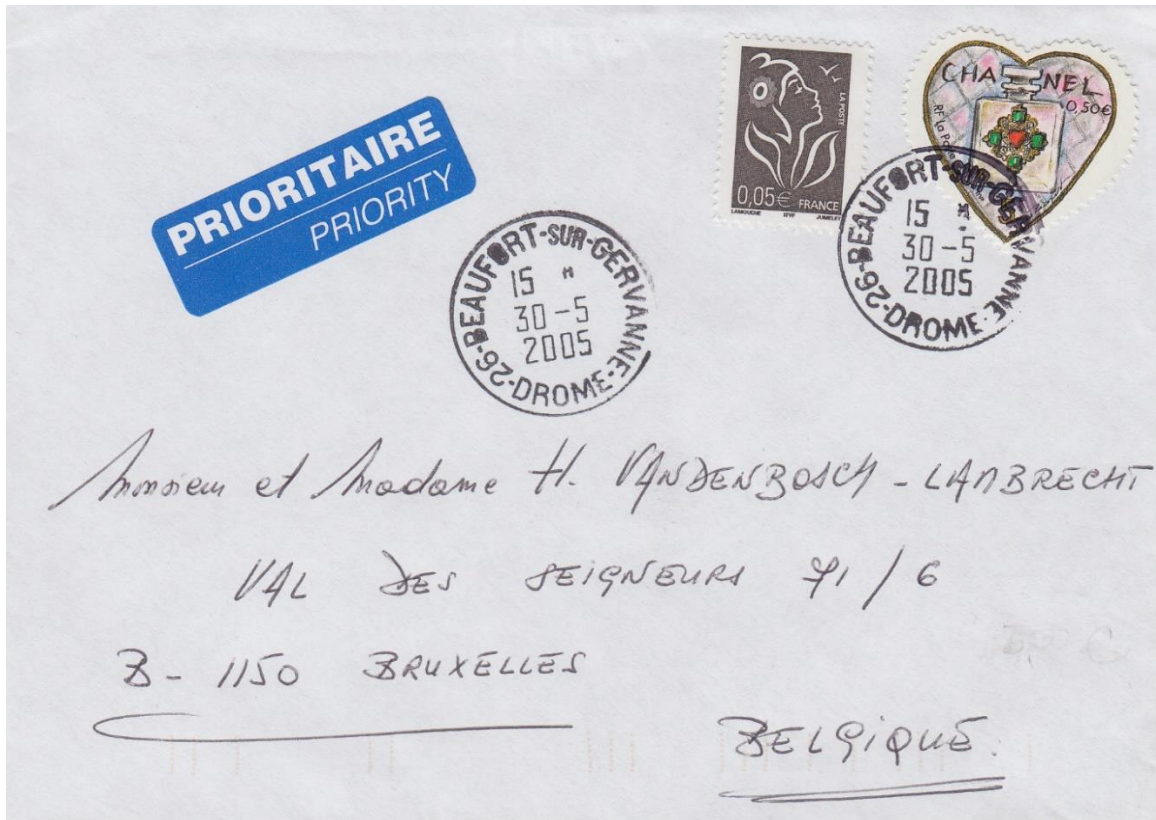 PRIORITAIRE
PRIORITY
LA POSTE
0,05€ FRANCE
LAMOUCHE ITVF JUMELET
CHANEL
0,50€
RF La Poste
26-BEAUFORT-SUR-GERVANNE-DROME-
15 H
30-5
2005
26-BEAUFORT-SUR-GERVANNE-DROME-
15 H
30-5
2005
Monsieur et Madame H. VANDENBOSCH - LAMBRECHT
VAL DES SEIGNEURS 71/6
B- 1150 BRUXELLES
BELGIQUE.